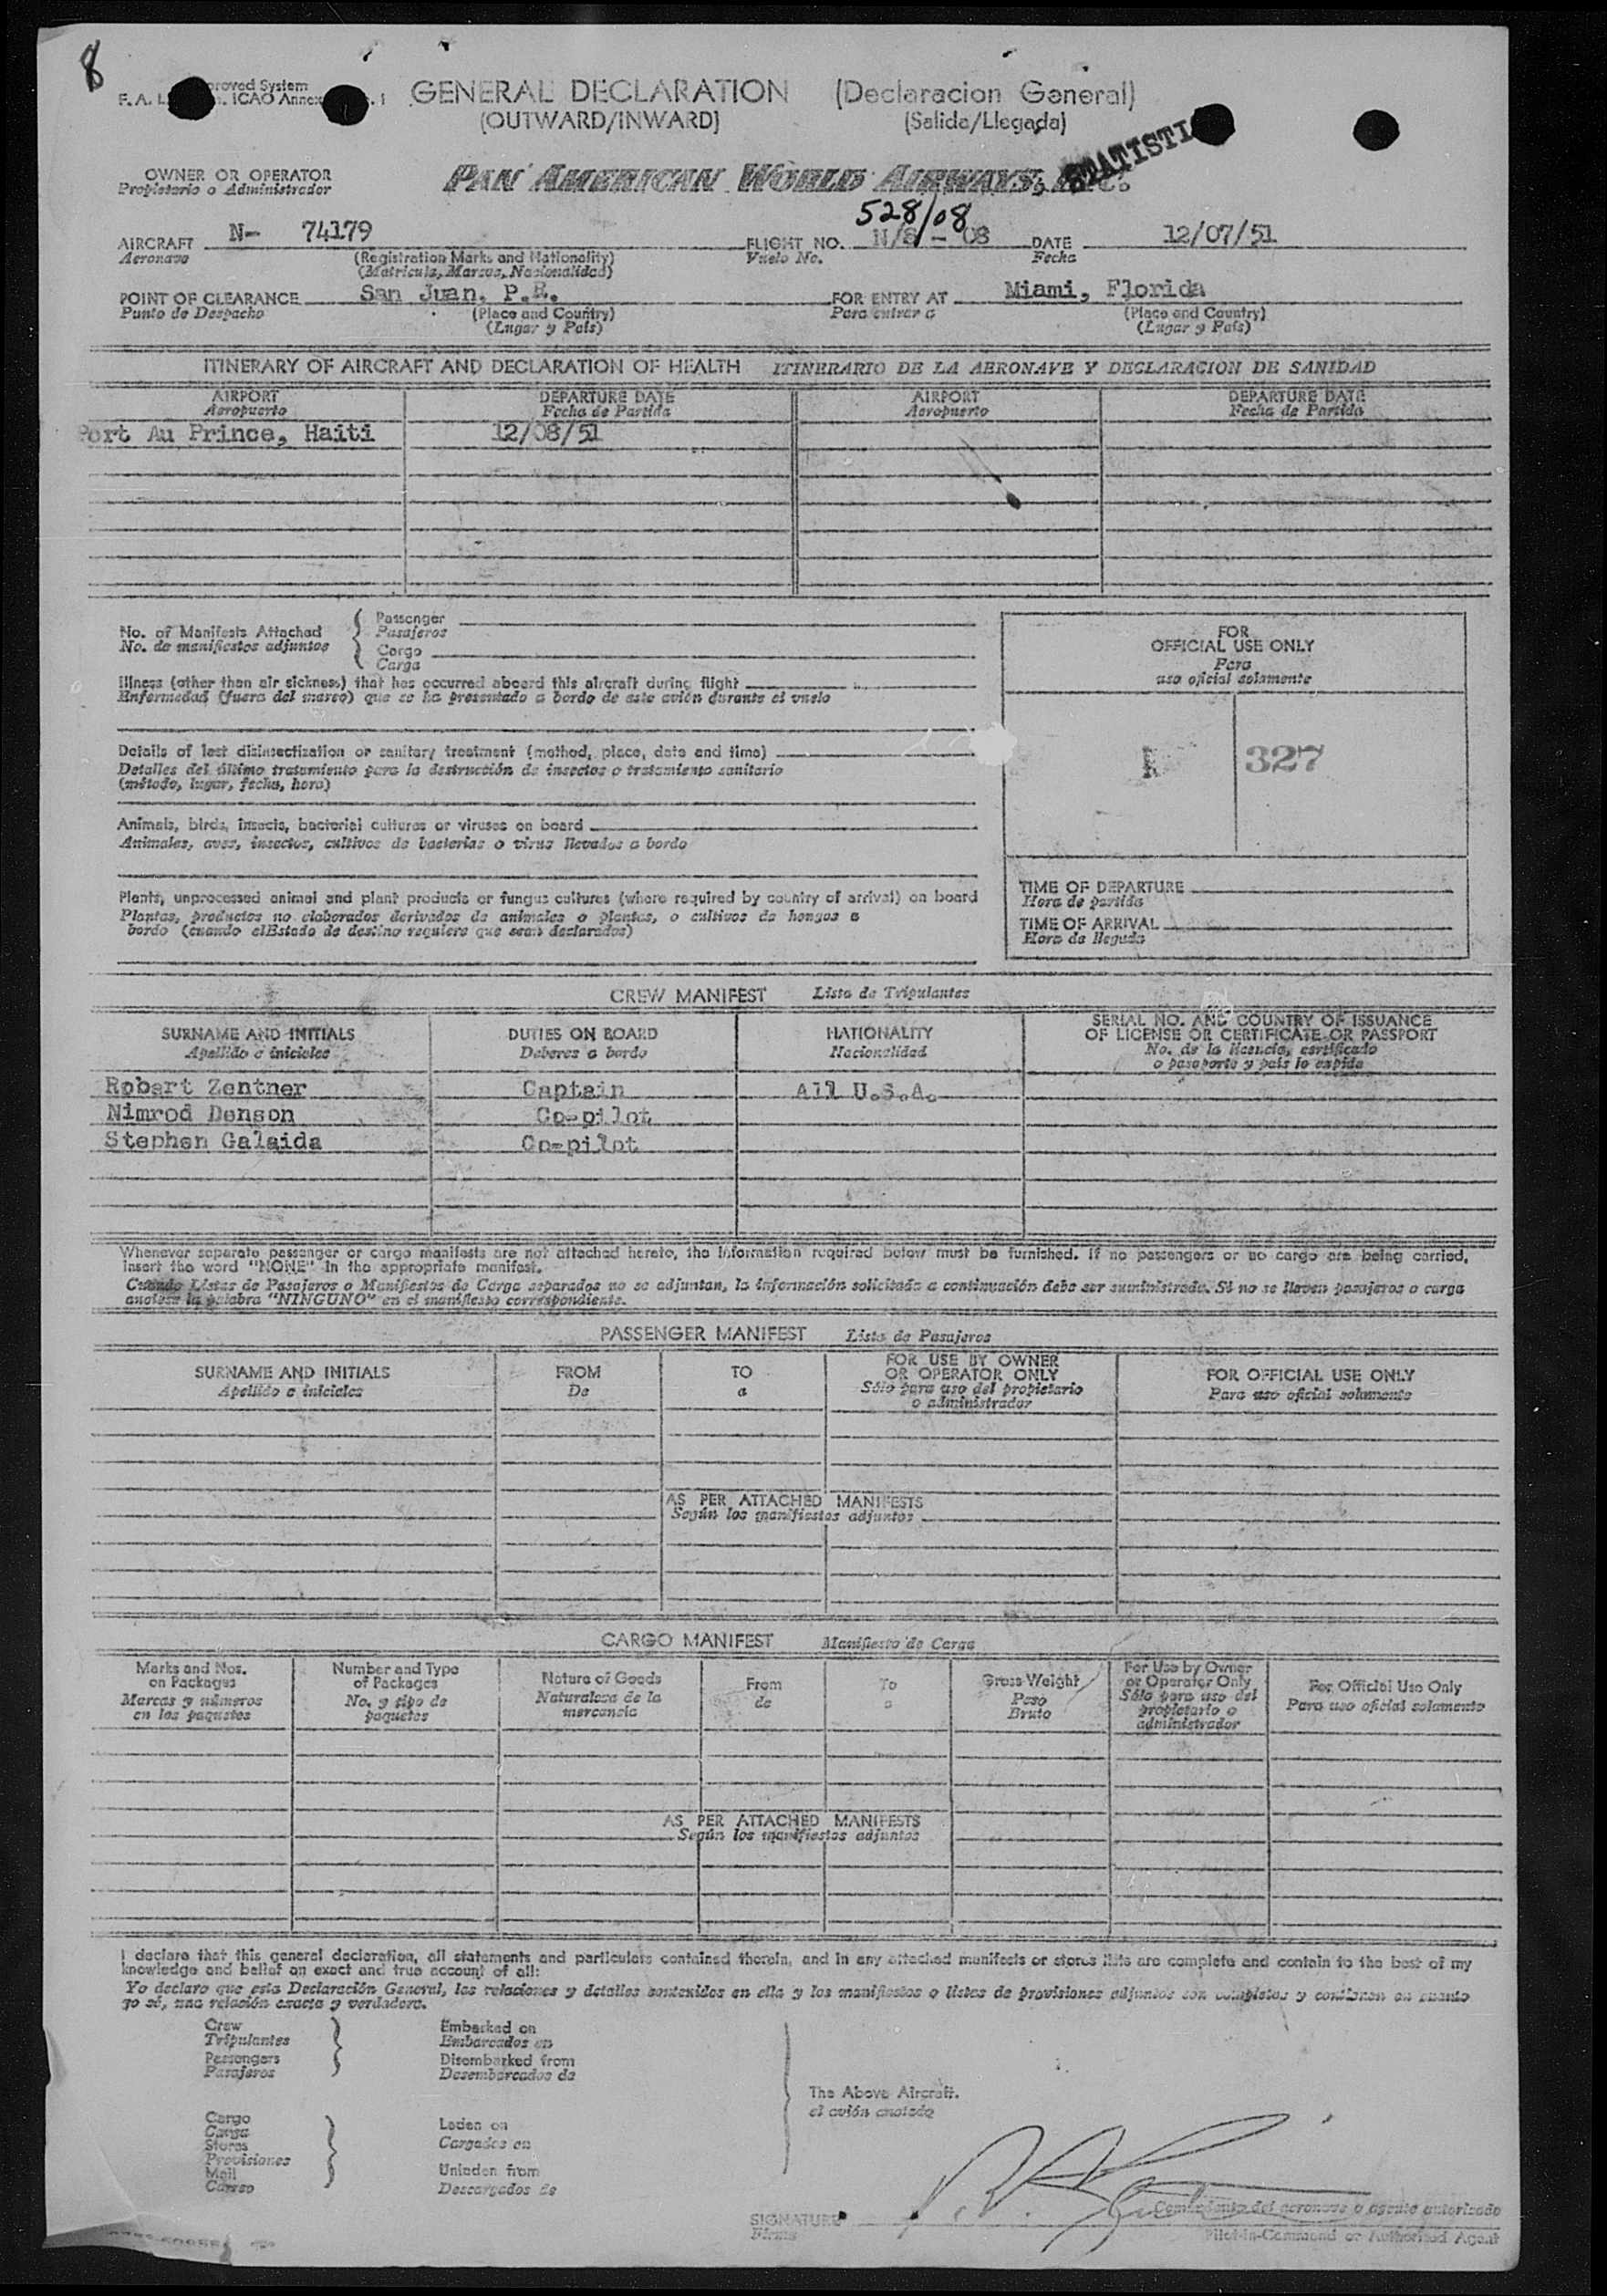 8
proved System
F. A. L. ICAO Annex
GENERAL DECLARATION (Declaracion General)
(OUTWARD/INWARD) (Salida/Llegada)
STATISTI
OWNER OR OPERATOR
Propietario o Administrador
PAN AMERICAN WORLD AIRWAYS, INC.
528/08
AIRCRAFT N- 74179 FLIGHT NO. DATE 12/07/51
Aeronave (Registration Marks and Nationality) Vuelo No. Fecha
(Matricula, Marcas, Nacionalidad)
POINT OF CLEARANCE San Juan, P.R. FOR ENTRY AT Miami, Florida
Punto de Despacho (Place and Country) Para entrar a (Place and Country)
(Lugar y País) (Lugar y País)
ITINERARY OF AIRCRAFT AND DECLARATION OF HEALTH ITINERARIO DE LA AERONAVE Y DECLARACION DE SANIDAD
AIRPORT DEPARTURE DATE AIRPORT DEPARTURE DATE
Aeropuerto Fecha de Partida Aeropuerto Fecha de Partida
Port Au Prince, Haiti 12/08/51
No. of Manifests Attached
No. de manifiestos adjuntos
Passenger
Pasajeros
Cargo
Carga
Illness (other than air sickness) that has occurred aboard this aircraft during flight
Enfermedad (fuera del mareo) que se ha presentado a bordo de este avión durante el vuelo
Details of last disinsectization or sanitary treatment (method, place, date and time)
Detalles del último tratamiento para la destrucción de insectos o tratamiento sanitario
(método, lugar, fecha, hora)
Animals, birds, insects, bacterial cultures or viruses on board
Animales, aves, insectos, cultivos de bacterias o virus llevados a bordo
Plants, unprocessed animal and plant products or fungus cultures (where required by country of arrival) on board
Plantas, productos no elaborados derivados de animales o plantas, o cultivos de hongos a
bordo (cuando elEstado de destino requiere que sean declarados)
FOR
OFFICIAL USE ONLY
Para
uso oficial solamente
327
TIME OF DEPARTURE
Hora de partida
TIME OF ARRIVAL
Hora de llegada
CREW MANIFEST Lista de Tripulantes
SURNAME AND INITIALS DUTIES ON BOARD NATIONALITY SERIAL NO. AND COUNTRY OF ISSUANCE
OF LICENSE OR CERTIFICATE OR PASSPORT
Apellido e iniciales Deberes a bordo Nacionalidad No. de la licencia, certificado
o pasaporte y país lo expide
Robert Zentner Captain All U.S.A.
Nimrod Denson Co-pilot
Stephen Galaida Co-pilot
Whenever separate passenger or cargo manifests are not attached hereto, the information required below must be furnished. If no passengers or no cargo are being carried,
insert the word "NONE" in the appropriate manifest.
Cuando Listas de Pasajeros o Manifiestos de Carga separados no se adjuntan, la información solicitada a continuación debe ser suministrada. Si no se llevan pasajeros o carga
anótese la palabra "NINGUNO" en el manifiesto correspondiente.
PASSENGER MANIFEST Lista de Pasajeros
SURNAME AND INITIALS FROM TO FOR USE BY OWNER
OR OPERATOR ONLY FOR OFFICIAL USE ONLY
Apellido e iniciales De a Sólo para uso del propietario
o administrador Para uso oficial solamente
AS PER ATTACHED MANIFESTS
Según los manifiestos adjuntos
CARGO MANIFEST Manifiesto de Carga
Marks and Nos.
on Packages
Marcas y números
en los paquetes
Number and Type
of Packages
No. y tipo de
paquetes
Nature of Goods
Naturaleza de la
mercancía
From
de
To
a
Gross Weight
Peso
Bruto
For Use by Owner
or Operator Only
Sólo para uso del
propietario o
administrador
For Official Use Only
Para uso oficial solamente
AS PER ATTACHED MANIFESTS
Según los manifiestos adjuntos
I declare that this general declaration, all statements and particulars contained therein, and in any attached manifests or stores lists are complete and contain to the best of my
knowledge and belief an exact and true account of all:
Yo declaro que esta Declaración General, las relaciones y detalles contenidos en ella y los manifiestos o listas de provisiones adjuntos son completos y contienen en cuanto
yo sé, una relación exacta y verdadera.
Crew
Tripulantes
Passengers
Pasajeros
Embarked on
Embarcados en
Disembarked from
Desembarcados de
The Above Aircraft.
el avión anotado
Cargo
Carga
Stores
Provisiones
Mail
Correo
Laden on
Cargados en
Unladen from
Descargados de
SIGNATURE
Firma
Comandante del aeronave o agente autorizado
Pilot-in-Command or Authorized Agent